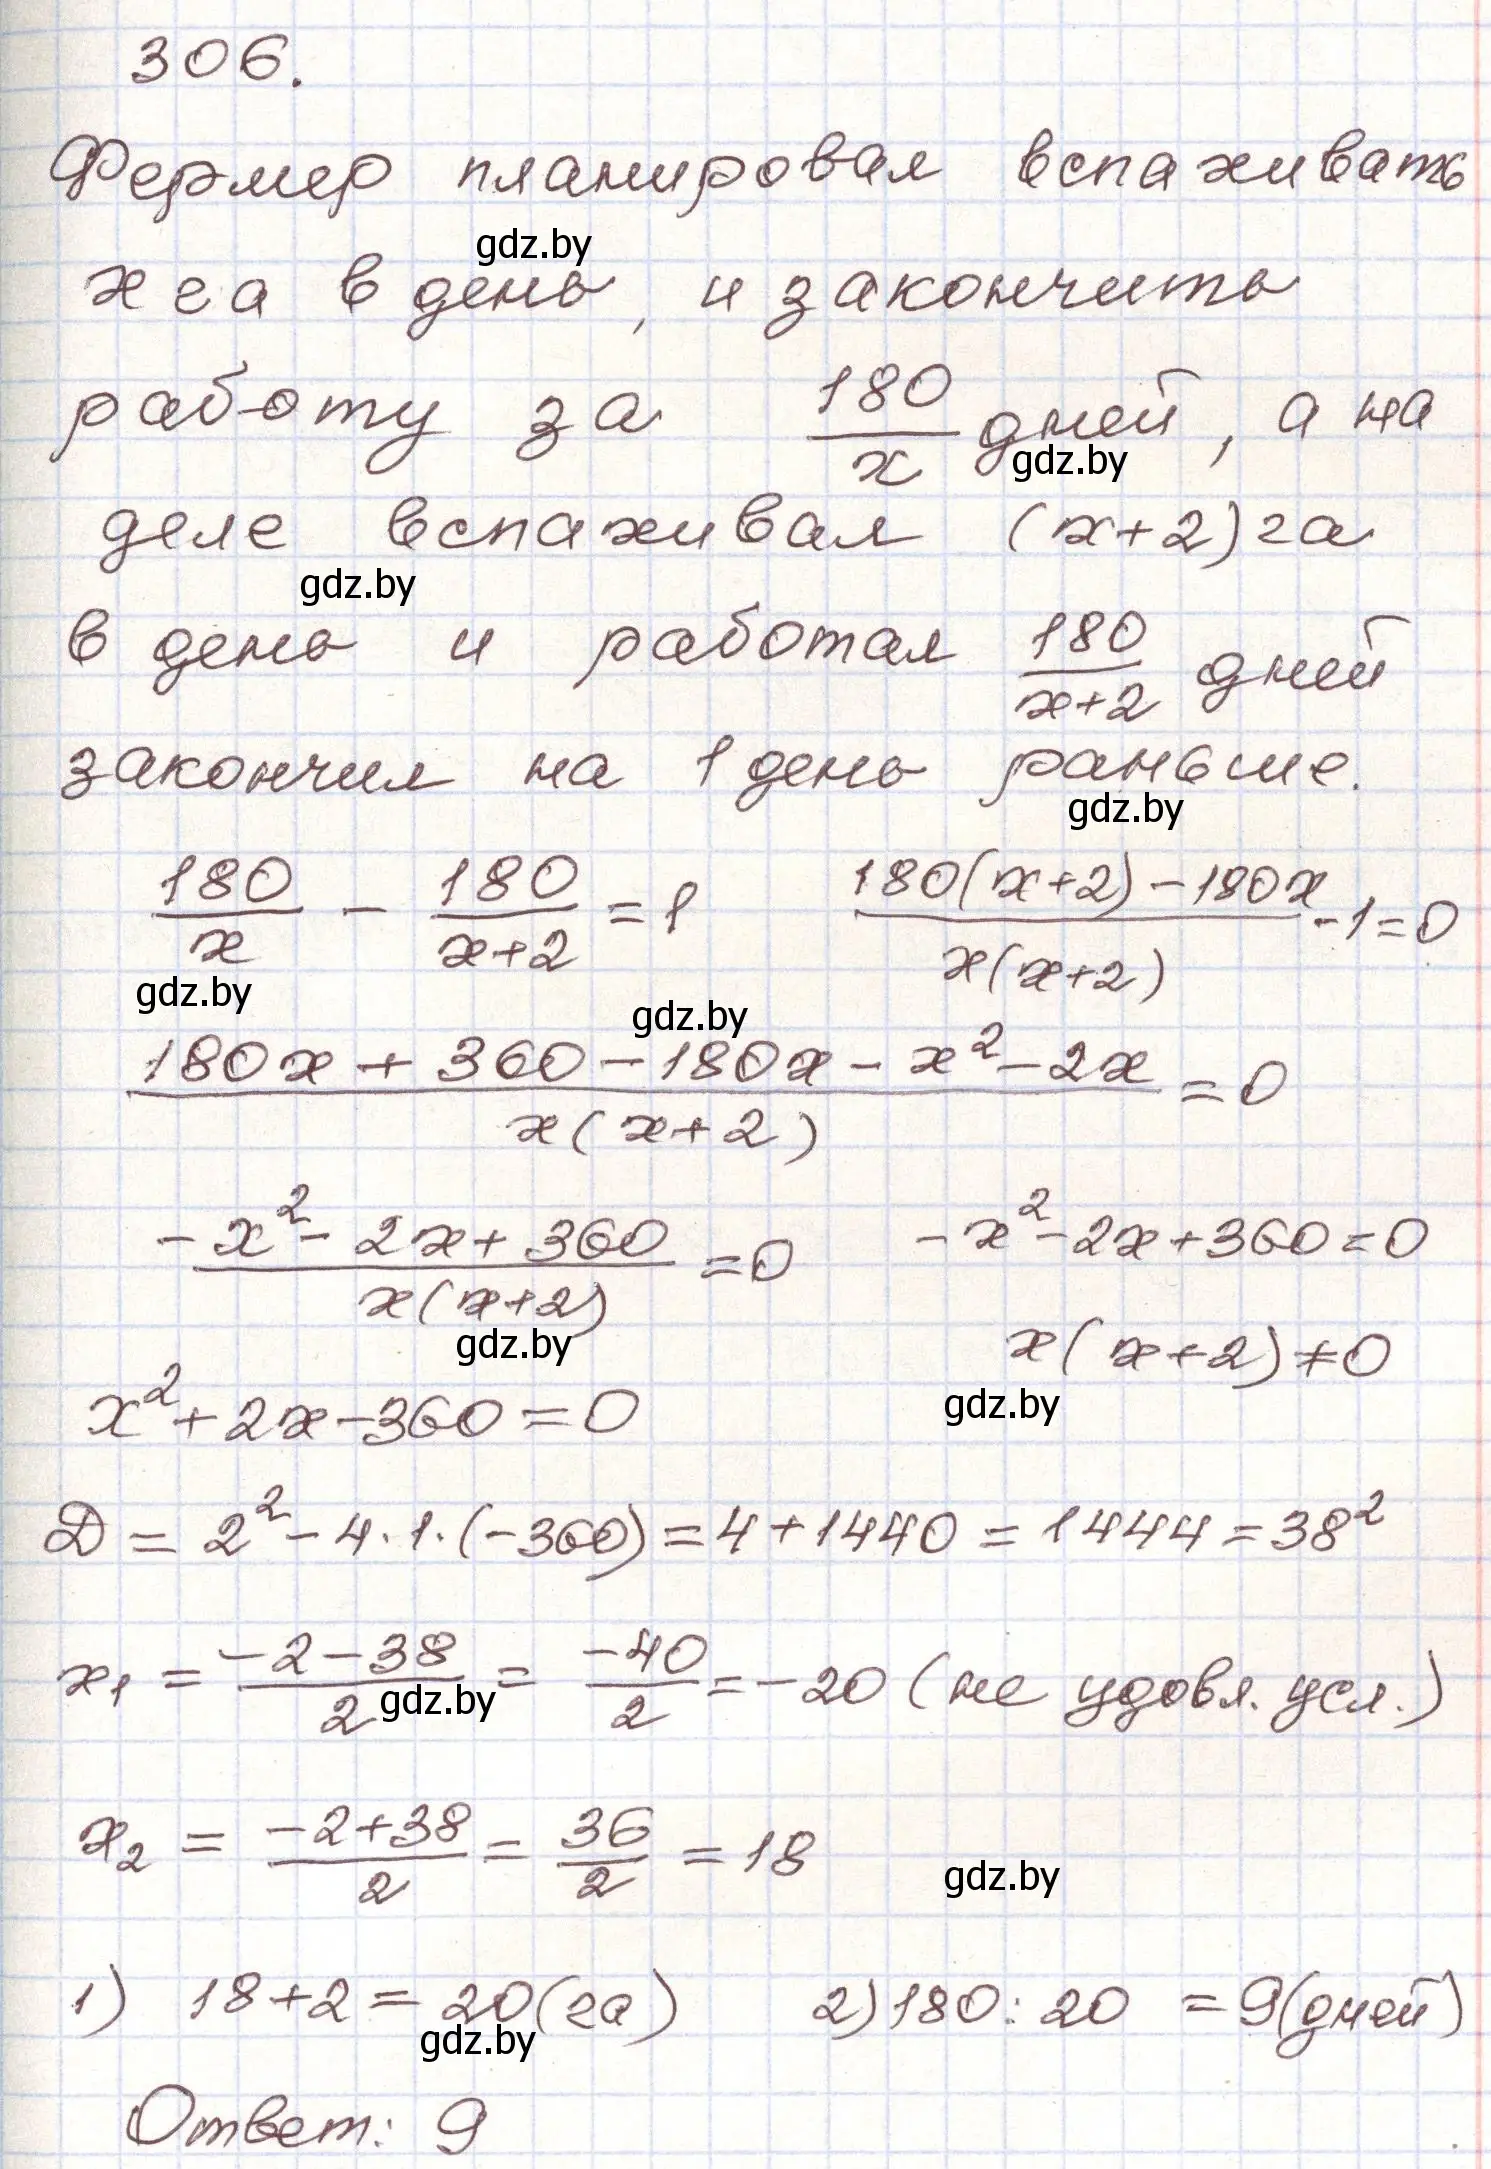 306.
Фермер планировал вспахивать
gdz.by
x га в день, и закончить
работу за 180/x дней, а на
gdz.by
деле вспахивал (x+2) га
gdz.by
в день и работал 180/(x+2) дней
закончил на 1 день раньше.
gdz.by
180/x - 180/(x+2) = 1 (180(x+2) - 180x)/(x(x+2)) - 1 = 0
gdz.by gdz.by
(180x + 360 - 180x - x² - 2x)/(x(x+2)) = 0
(-x² - 2x + 360)/(x(x+2)) = 0 -x² - 2x + 360 = 0
gdz.by x(x+2) ≠ 0
gdz.by
x² + 2x - 360 = 0
D = 2² - 4·1·(-360) = 4 + 1440 = 1444 = 38²
x₁ = (-2-38)/2 = -40/2 = -20 (не удовл. усл.)
gdz.by
x₂ = (-2+38)/2 = 36/2 = 18
gdz.by
1) 18+2 = 20 (га) 2) 180 : 20 = 9 (дней)
gdz.by
Ответ: 9